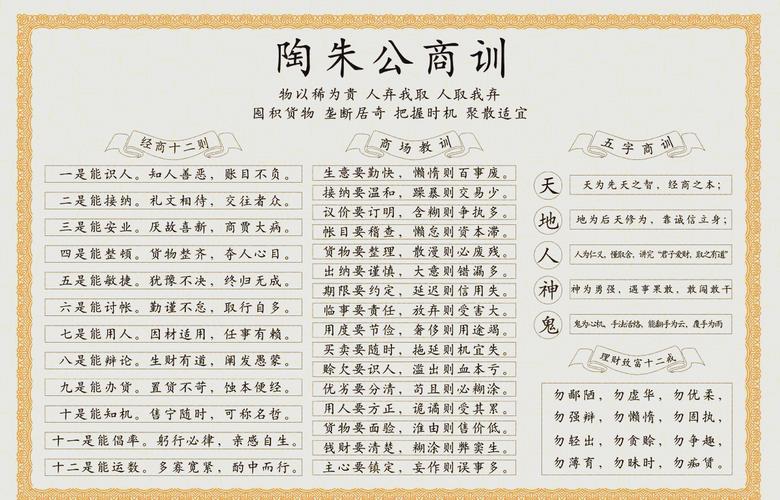 陶朱公商训
物以稀为贵 人弃我取 人取我弃
囤积货物 垄断居奇 把握时机 聚散适宜
经商十二则
一是能识人。知人善恶,账目不负。
二是能接纳。礼文相待,交往者众。
三是能安业。厌故喜新,商贾大病。
四是能整顿。货物整齐,夺人心目。
五是能敏捷。犹豫不决,终归无成。
六是能讨帐。勤谨不怠,取行自多。
七是能用人。因材适用,任事有赖。
八是能辩论。生财有道,阐发愚蒙。
九是能办货。置货不苛,蚀本便经。
十是能知机。售宁随时,可称名哲。
十一是能倡率。躬行必律,亲感自生。
十二是能运数。多寡宽紧,酌中而行。
商场教训
生意要勤快,懒惰则百事废。
接纳要温和,躁暴则交易少。
议价要订明,含糊则争执多。
帐目要稽查,懒怠则资本滞。
货物要整理,散漫则必废残。
出纳要谨慎,大意则错漏多。
期限要约定,延迟则信用失。
临事要责任,放弃则受害大。
用度要节俭,奢侈则用途竭。
买卖要随时,拖延则机宜失。
赊欠要识人,滥出则血本亏。
优劣要分清,苟且则必糊涂。
用人要方正,诡谲则受其累。
货物要面验,滥由则售价低。
钱财要清楚,糊涂则弊窦生。
主心要镇定,妄作则误事多。
五字商训
天 天为先天之智,经商之本;
地 地为后天修为,靠诚信立身;
人 人为仁义,懂取舍,讲究“君子爱财,取之有道”
神 神为勇强,遇事果敢,敢闯敢干
鬼 鬼为心机,手法活络,能翻手为云,覆手为雨
理财致富十二戒
勿鄙陋,勿虚华,勿优柔,
勿强辩,勿懒惰,勿固执,
勿轻出,勿贪赊,勿争趣,
勿薄育,勿昧时,勿痴货。